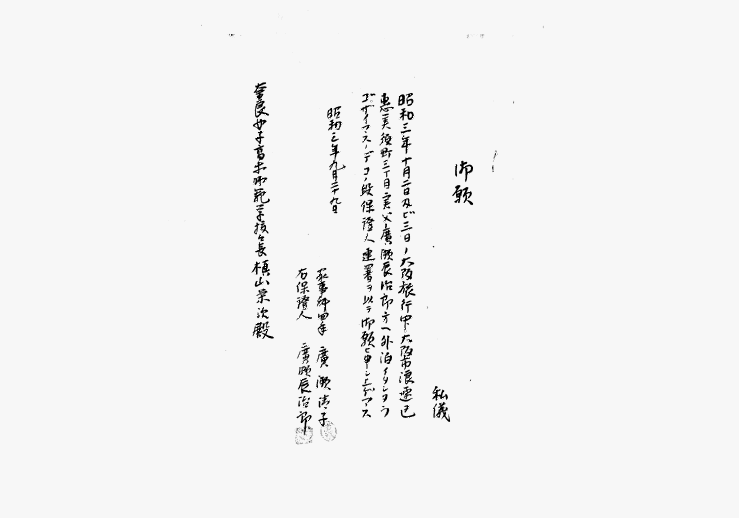 御願
私儀
昭和三年十月二日及ビ三日ノ大阪旅行中大阪市浪速区
恵美須町三丁目実父廣瀬辰治郎方ヘ外泊イタシタウ
ゴザイマスノデコノ段保證人連署ヲ以テ御願ヒ申シアゲマス
昭和三年九月二十九日
家事科四年 廣瀬清子
右保證人 廣瀬辰治郎
奈良女子高等師範学校長槙山栄次殿